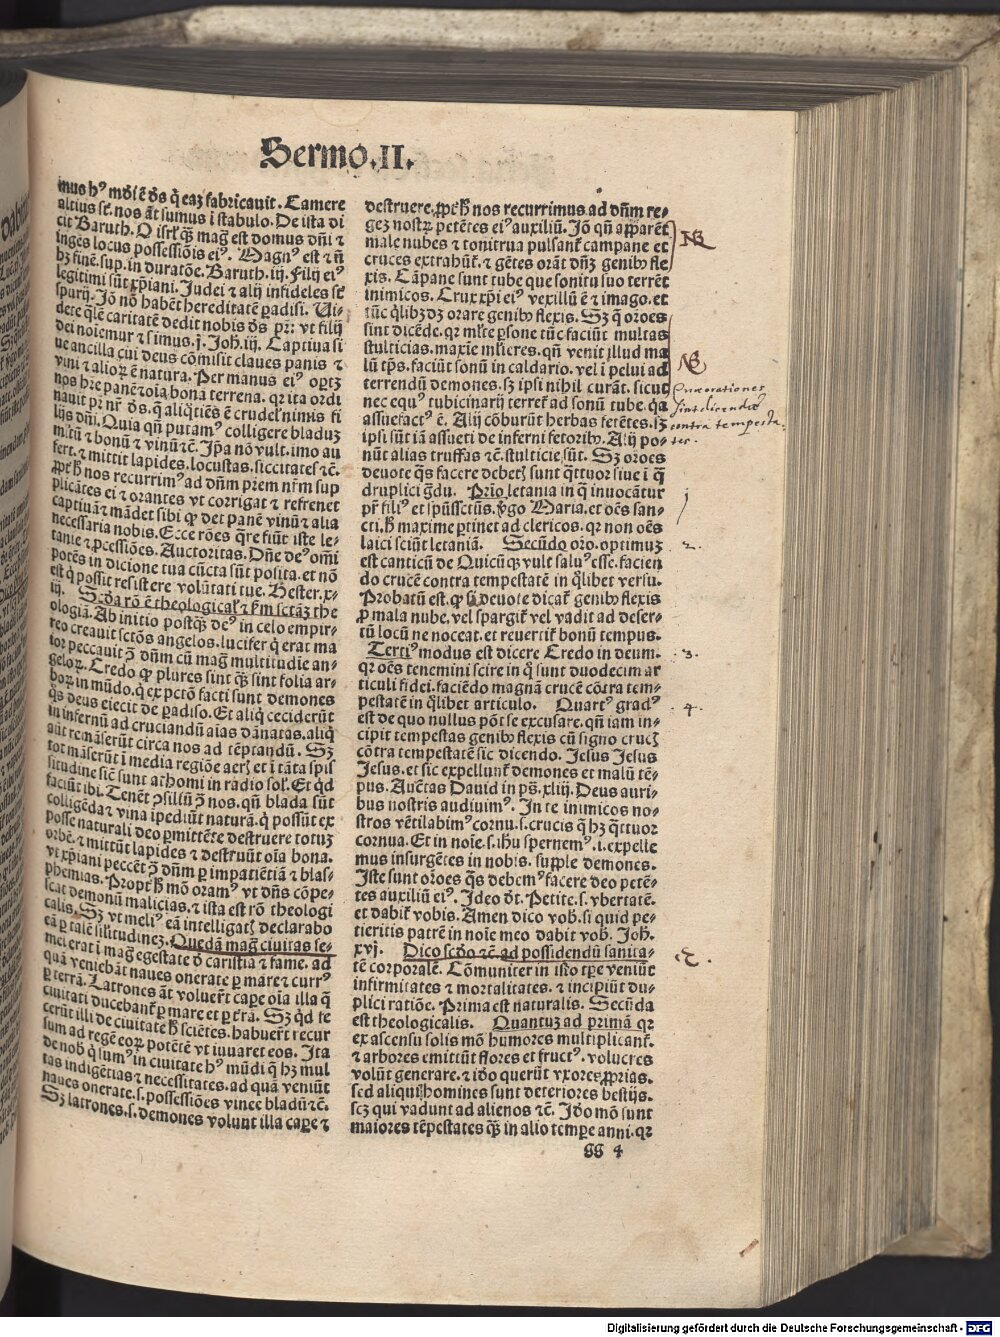 Sermo.II.
mus hꝰ mūdi ē de̅s q̇ eaꝫ fabricauit. Camere
altius sc̄. nos āt sumus ī stabulo. De ista di
cit Baruth. O isrl̄ qꝫ mag̅ est domus dn̄i ⁊
inges locus possessiōis eiꝰ. Magnꝰ est ⁊ nō
hꝫ finē. sup. in duratōe. Baruth. iij. Filij eiꝰ
legitimi sūt xp̄iani. Judei ⁊ alij infideles sc̄
spurij. Jō nō habēt hereditatē padisi. Ui⸗
dete q̄lē caritatē dedit nobis de̅s pr̄: vt filij
dei noiemur ⁊ simus. j. Joh. iij. Captiua si
ue ancilla cui deus cōmisit claues panis ⁊
vini ⁊ alioꝝ ē natura. Per manus eiꝰ optꝫ
nos hr̄e panē ⁊ oīa bona terrena. qꝛ ita ordi
nauit pr̄ nr̄ de̅s. q̄ aliq̄tiēs ē crudel̄ nimis fi
lijs dn̄i. Quia qn̄ putamꝰ colligere bladuꝫ
mltū ⁊ bonū ⁊ vinū ⁊c̄. Jpā nō vult. imo au
fert. ⁊ mittit lapides. locustas. siccitates ⁊c̄.
ꝓpt̄ h̄ nos recurrimꝰ ad dn̄m prem nr̄m sup
plicātes ei ⁊ orantes vt corrigat ⁊ refrenet
captiuā ⁊ mādet sibi ꝙ det panē vinū ⁊ alia
necessaria nobis. Ecce rōes q̄re fiūt iste le⸗
tanie ⁊ ꝓcessiōes. Auctoritas. Dn̄e deꝰ om̄i
potēs in dicione tua cūcta sūt posita. et nō
est q̇ possit resistere volūtati tue. Hester. x⸗
iij. Scd̄a rō ē theological̄ ⁊ fm̄ sctāꝫ the
ologiā. Ab initio postq̄ꝫ deꝰ in celo empir⸗
reo creauit sctōs angelos. lucifer q̇ erat ma
ior peccauit ꝯ dn̄m cū mag̅ multitudīe an⸗
geloꝝ. Credo ꝙ plures sint q̄ꝫ sint folia ar⸗
boꝝ in mūdo. q̇ ex pctō facti sunt demones
q̇s deus eiecit de padiso. Et aliq̇ ceciderūt
in infernū ad cruciandū aīas dānatas. aliq̇
aūt remāserūt circa nos ad tēptandū. Sꝫ
tot māserūt ī media regiōe aerꝭ et ī tāta spis
situdine sic̄ sunt athomi in radio sol̄. Et q̇d
faciūt ibi. Tenēt ꝯsiliū ꝯ nos. qn̄ blada sūt
colligēda ⁊ vina ipediūt naturā. q̇ possūt ex
posse naturali deo pmittēte destruere totuꝫ
orbē. ⁊ mittūt lapides ⁊ destruūt oīa bona.
vt xp̄iani peccēt ꝯ dn̄m p impatiētiā ⁊ blas⸗
phemias. Propt̄ h̄ mō oramꝰ vt dn̄s cōpe⸗
scat demonū malicias. ⁊ ista est rō theologi
calis. Sꝫ vt meliꝰ eā intelligatꝭ declarabo
eā p talē sil̄itudineꝫ. Quedā mag̅ ciuitas se⸗
mel erat ī mag̅ egestate ꝺ̄ caristia ⁊ fame. ad
quā veniebāt naues onerate p mare ⁊ currꝰ
p terrā. Latrones āt voluer̄t cape oīa illa q̄
ciuitati ducebant̄ p mare et p t̄rā. Sꝫ q̇d fe
cerūt illi de ciuitate h̄ sciētes. habuer̄t recur
sum ad regē eoꝝ potētē vt iuuaret eos. Jta
de nob̄ q̇ sumꝰ in ciuitate hꝰ mūdi q̄ hꝫ mul
tas indigētias ⁊ necessitates. ad quā veniūt
naues onerate. s. possessiōes vinee bladū ⁊c̄.
Sꝫ latrones. s. demones volunt illa cape ⁊
destruere. ꝓpt̄ h̄ nos recurrimus ad dn̄m re⸗
geꝫ nostꝝ petētes eiꝰ auxiliū. Jō qn̄ apparēt
male nubes ⁊ tonitrua pulsant̄ campane et
cruces extrahūt̄. ⁊ gētes orāt dn̄ꝫ genibꝰ fle
xis. Cāpane sunt tube que sonitu suo terrēt
inimicos. Crux xp̄i eiꝰ vexillū ē ⁊ imago. et
tūc q̄libꝫ dꝫ orare genibꝰ flexis. Sꝫ q̄ orōes
sint dicēde. qꝛ mlte psone tūc faciūt multas
stulticias. maxie mlīeres. qn̄ venit illud ma
lū tp̄s. faciūt sonū in caldario. vel ī pelui ad
terrendū demones. sꝫ ipsi nihil curāt. sicut
nec equꝰ tubicinarij terret̄ ad sonū tube. q̄a
assuefactꝰ ē. Alij cōburūt herbas fetētes. sꝫ
ipsi sūt iā assueti de inferni fetoribꝰ. Alij po⸗
nūt alias truffas ⁊c̄. stulticie sūt. Sꝫ orōes
deuote q̄s facere debetꝭ sunt q̇ttuor siue ī q̄
druplici g̅du. Prīo letania in q̄ inuocātur
pr̄ filiꝰ et spūssctūs. v̇go Maria. et oēs san⸗
cti. h̄ maxime ptinet ad clericos. qꝛ non oēs
laici sciūt letaniā. Secūdo orō. optimuꝫ
est canticū de Quicūqꝫ vult saluꝰ esse. facien
do crucē contra tempestatē in q̄libet versu.
Probatū est. ꝙ si deuote dicat̄ genibꝰ flexis
ꝓ mala nube. vel spargit̄ vel vadit ad deser⸗
tū locū ne noceat. et reuertit̄ bonū tempus.
Tertiꝰ modus est dicere Credo in deum.
qꝛ oēs tenemini scire in q̄ sunt duodecim ar
ticuli fidei. faciēdo magnā crucē cōtra tem⸗
pestatē in q̄libet articulo. Quartꝰ gradꝰ
est de quo nullus pōt se excusare. qn̄ iam in⸗
cipit tempestas genibꝰ flexis cū signo crucꝭ
cōtra tempestatē sic dicendo. Jesus Jesus
Jesus. et sic expellunt̄ demones et malū tē⸗
pus. Auētas Dauid in ps̄. xliij. Deus auri⸗
bus nostris audiuimꝰ. In te inimicos no⸗
stros vētilabimꝰ cornu. s. crucis q̄ hꝫ q̇ttuor
cornua. Et in noīe. s. ihū spernemꝰ. i. expelle
mus insurgētes in nobis. supple demones.
Jste sunt orōes q̄s debemꝰ facere deo petē⸗
tes auxiliū eiꝰ. Jdeo ꝺ̄t. Petite. s. vbertatē.
et dabit̄ vobis. Amen dico vob̄. si quid pe⸗
tieritis patrē in noīe meo dabit vob̄. Joh̄.
xvj. Dico scd̄o ⁊c̄. ad possidendū sanita⸗
tē corporalē. Cōmuniter in isto tp̄e veniūt
infirmitates ⁊ mortalitates. ⁊ incipiūt du⸗
plici ratiōe. Prima est naturalis. Secūda
est theologicalis. Quantuꝫ ad primā qꝛ
ex ascensu solis mō humores multiplicant̄.
⁊ arbores emittūt flores et fructꝰ. volucres
volūt generare. ⁊ iō querūt vxores ꝓprias.
sed aliqui homines sunt deteriores bestijs.
scꝫ qui vadunt ad alienos ⁊c̄. Jō mō sunt
maiores tēpestates q̄ꝫ in alio tempe anni. qꝛ
gg 4
NB
NB
Quae orationes
sint dicendae
contra tempesta⸗
tes.
j
2.
3.
4.
2.
Digitalisierung gefördert durch die Deutsche Forschungsgemeinschaft - DFG